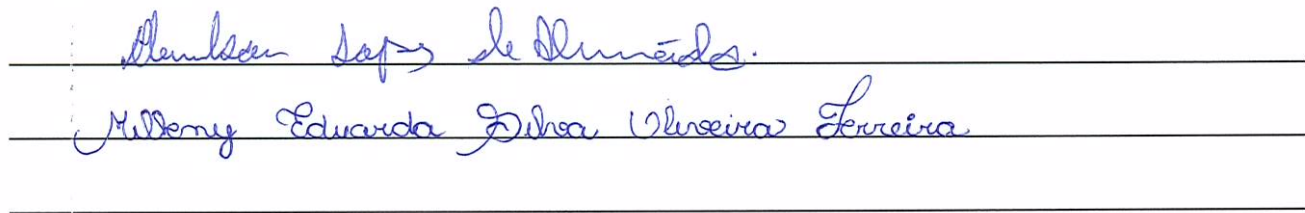 Lopes de Almeida.
Milleny Eduarda Silva Oliveira Ferreira